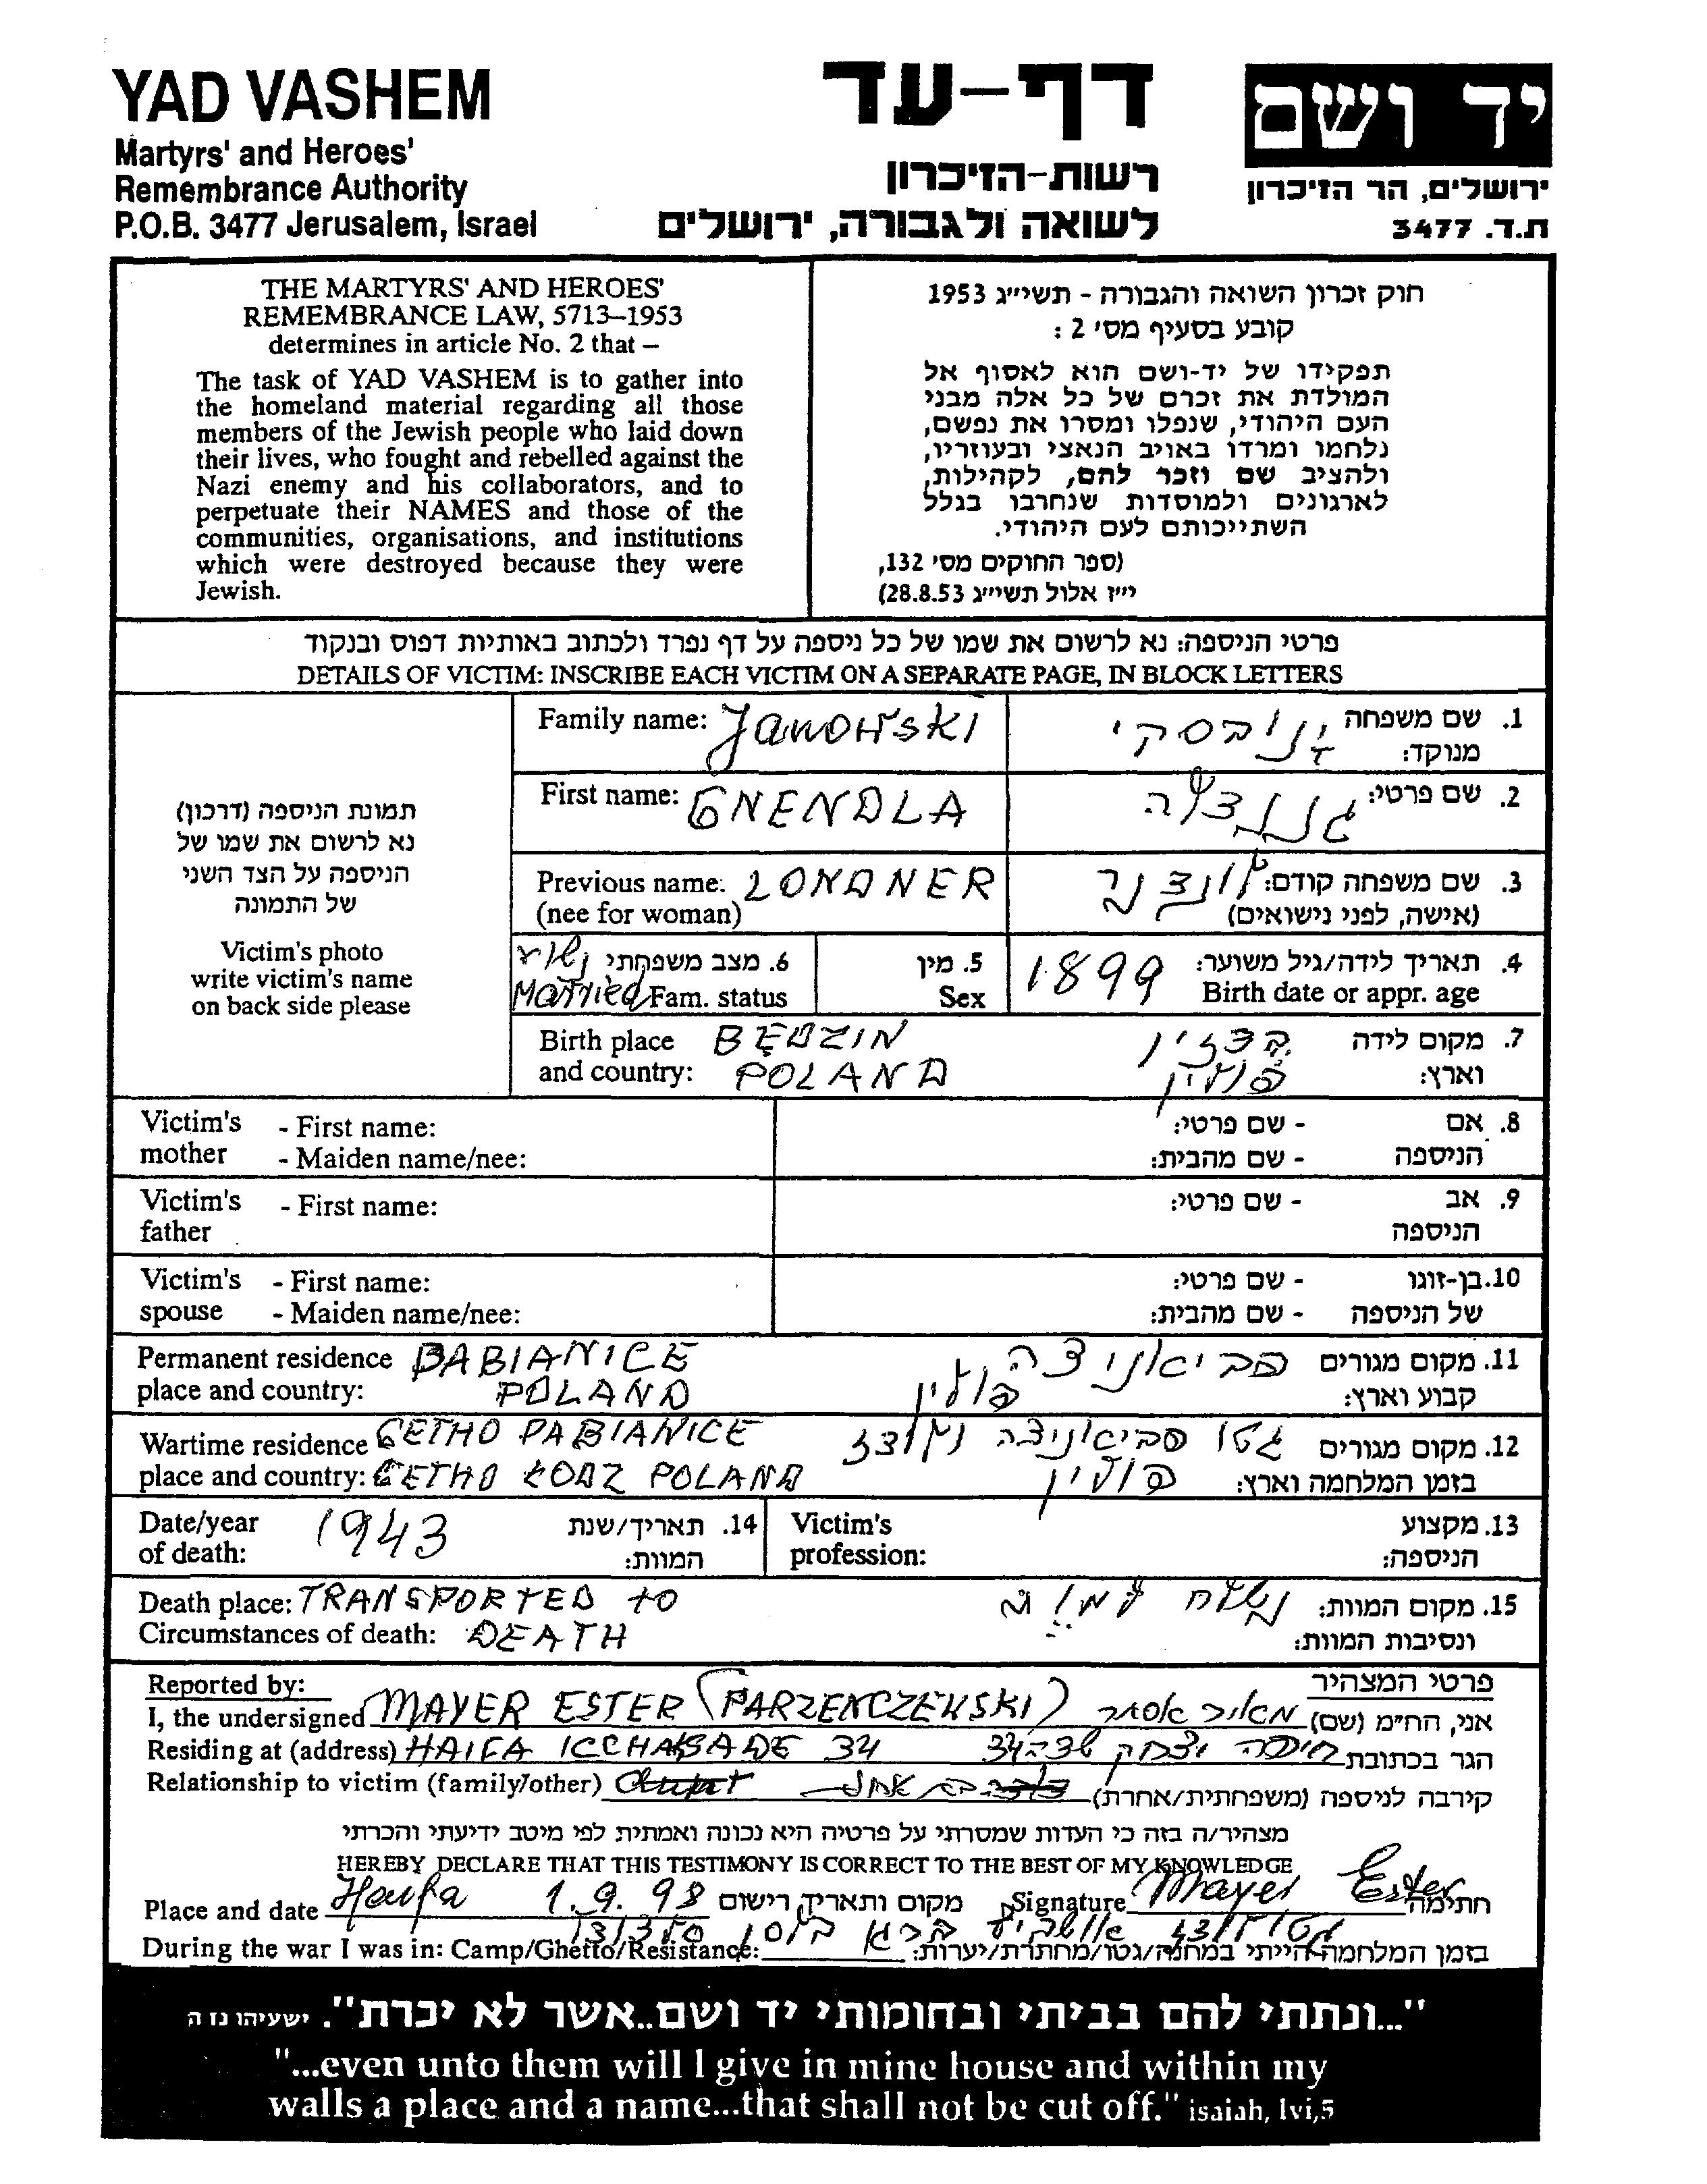 YAD VASHEM
Martyrs' and Heroes'
Remembrance Authority
P.O.B. 3477 Jerusalem, Israel
דף-עד
רשות-הזיכרון
לשואה ולגבורה, ירושלים
יד ושם
ירושלים, הר הזיכרון
ת.ד. 3477
THE MARTYRS' AND HEROES'
REMEMBRANCE LAW, 5713–1953
determines in article No. 2 that –
The task of YAD VASHEM is to gather into
the homeland material regarding all those
members of the Jewish people who laid down
their lives, who fought and rebelled against the
Nazi enemy and his collaborators, and to
perpetuate their NAMES and those of the
communities, organisations, and institutions
which were destroyed because they were
Jewish.
חוק זכרון השואה והגבורה - תשי״ג 1953
קובע בסעיף מס׳ 2 :
תפקידו של יד-ושם הוא לאסוף אל
המולדת את זכרם של כל אלה מבני
העם היהודי, שנפלו ומסרו את נפשם,
נלחמו ומרדו באויב הנאצי ובעוזריו,
ולהציב שם וזכר להם, לקהילות,
לארגונים ולמוסדות שנחרבו בגלל
השתייכותם לעם היהודי.
(ספר החוקים מס׳ 132,
י״ז אלול תשי״ג 28.8.53)
פרטי הניספה: נא לרשום את שמו של כל ניספה על דף נפרד ולכתוב באותיות דפוס ובנקוד
DETAILS OF VICTIM: INSCRIBE EACH VICTIM ON A SEPARATE PAGE, IN BLOCK LETTERS
תמונת הניספה (דרכון)
נא לרשום את שמו של
הניספה על הצד השני
של התמונה
Victim's photo
write victim's name
on back side please
Family name: Janowski
1. שם משפחה ינובסקי
מנוקד:
First name: GNENDLA
2. שם פרטי: גננדלה
Previous name: LONDNER
(nee for woman)
3. שם משפחה קודם: לונדנר
(אישה, לפני נישואים)
6. מצב משפחתי
Married Fam. status
5. מין
Sex
4. תאריך לידה/גיל משוער: 1899
Birth date or appr. age
Birth place BĘDZIN
and country: POLAND
7. מקום לידה בנדזין
וארץ: פולין
Victim's - First name:
mother - Maiden name/nee:
8. אם - שם פרטי:
הניספה - שם מהבית:
Victim's - First name:
father
9. אב - שם פרטי:
הניספה
Victim's - First name:
spouse - Maiden name/nee:
10. בן-זוגו - שם פרטי:
של הניספה - שם מהבית:
Permanent residence PABIANICE
place and country: POLAND
11. מקום מגורים פביאניצה
קבוע וארץ: פולין
Wartime residence GETHO PABIANICE
place and country: GETHO ŁODZ POLAND
12. מקום מגורים גטו פביאניצה ולודז
בזמן המלחמה וארץ: פולין
Date/year 1943
of death:
14. תאריך/שנת
המוות:
Victim's
profession:
13. מקצוע
הניספה:
Death place: TRANSPORTED to
Circumstances of death: DEATH
15. מקום המוות: נשלח
ונסיבות המוות:
Reported by:
I, the undersigned MAYER ESTER (PARZENCZEWSKI)
Residing at (address) HAIFA 34
Relationship to victim (family/other)
פרטי המצהיר
אני, הח״מ (שם) מאיר אסתר
הגר בכתובת חיפה יצחק שדה 34
קירבה לניספה (משפחתית/אחרת)
מצהיר/ה בזה כי העדות שמסרתי על פרטיה היא נכונה ואמתית לפי מיטב ידיעתי והכרתי
HEREBY DECLARE THAT THIS TESTIMONY IS CORRECT TO THE BEST OF MY KNOWLEDGE
Place and date Haifa 1.9.98 מקום ותאריך רישום Signature Mayer Ester חתימה
During the war I was in: Camp/Ghetto/Resistance:
בזמן המלחמה הייתי במחנה/גטו/מחתרת/יערות: גטו לודז
"...ונתתי להם בביתי ובחומותי יד ושם..אשר לא יכרת". ישעיהו נו ה
"...even unto them will I give in mine house and within my
walls a place and a name...that shall not be cut off." isaiah, lvi,5